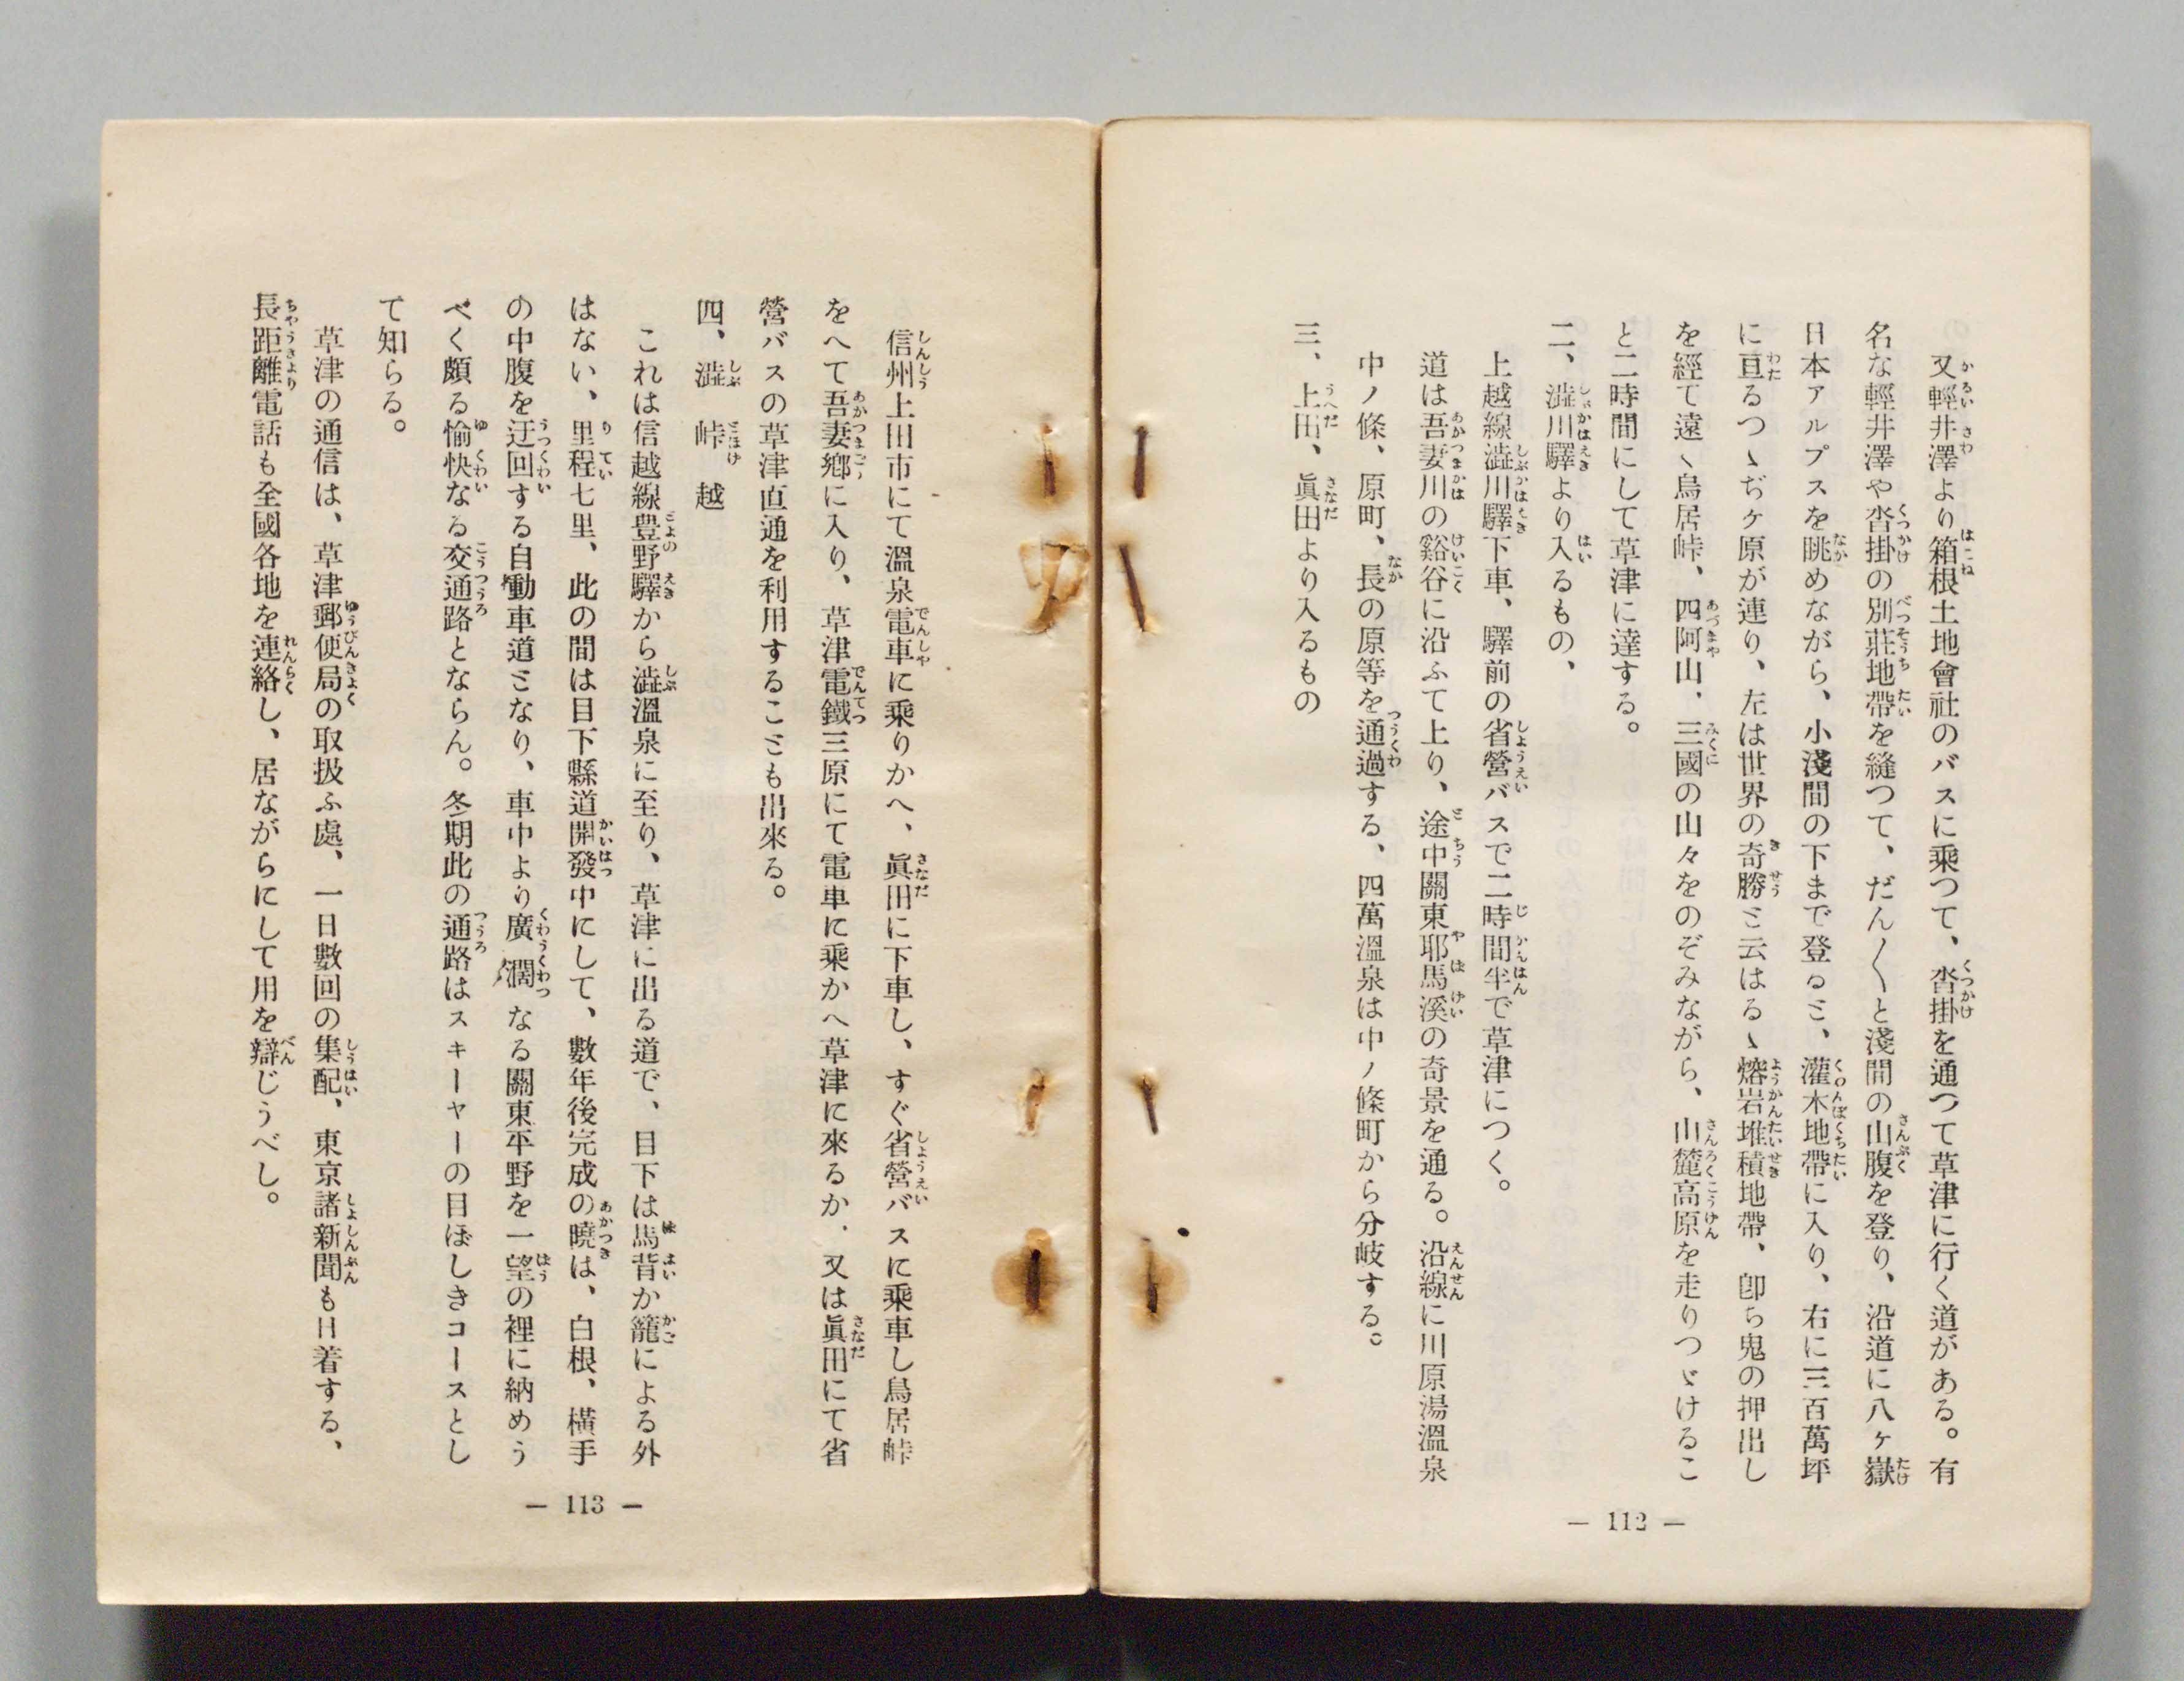 又輕井澤より箱根土地會社のバスに乘つて、沓掛を通つて草津に行く道がある。有
名な輕井澤や沓掛の別莊地帶を縫つて、だん〱と淺間の山腹を登り、沿道に八ヶ嶽
日本アルプスを眺めながら、小淺間の下まで登るミ、灌木地帶に入り、右に三百萬坪
に亘るつゝぢヶ原が連り、左は世界の奇勝ミ云はるゝ熔岩堆積地帶、卽ち鬼の押出し
を經て遠く鳥居峠、四阿山、三國の山々をのぞみながら、山麓高原を走りつゞけるこ
と二時間にして草津に達する。
二、澁川驛より入るもの、
上越線澁川驛下車、驛前の省營バスで二時間半で草津につく。
道は吾妻川の谿谷に沿ふて上り、途中關東耶馬溪の奇景を通る。沿線に川原湯溫泉
中ノ條、原町、長の原等を通過する、四萬溫泉は中ノ條町から分岐する。
三、上田、眞田より入るもの
― 112 ―
信州上田市にて溫泉電車に乘りかへ、眞田に下車し、すぐ省營バスに乘車し鳥居峠
をへて吾妻鄕に入り、草津電鐵三原にて電車に乘かへ草津に來るか、又は眞田にて省
營バスの草津直通を利用するこミも出來る。
四、澁峠越
これは信越線豊野驛から澁溫泉に至り、草津に出る道で、目下は馬背か籠による外
はない、里程七里、此の間は目下縣道開發中にして、數年後完成の曉は、白根、橫手
の中腹を迂回する自動車道ミなり、車中より廣濶なる關東平野を一望の裡に納めう
べく頗る愉快なる交通路とならん。冬期此の通路はスキーヤーの目ぼしきコースとし
て知らる。
草津の通信は、草津郵便局の取扱ふ處、一日數回の集配、東京諸新聞も日着する、
長距離電話も全國各地を連絡し、居ながらにして用を辯じうべし。
― 113 ―